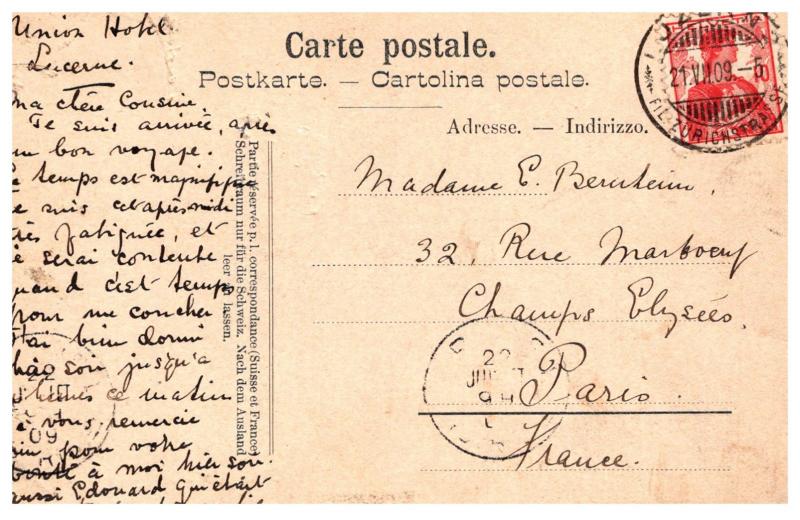 Union Hotel
Lucerne.
ma chère Cousine.
Je suis arrivée, après
un bon voyage.
temps est magnifique
suis cet après midi
très fatiguée, et
serai contente
quand c'est temps
pour me coucher
J'ai bien dormi
soir jusqu'a
ce matin
vous remercie
pour votre
bonté à moi hier soir.
aussi Edouard qui était
Partie réservée p. l. correspondance (Suisse et France)
Schreibraum nur für die Schweiz. Nach dem Ausland
leer zu lassen.
Carte postale.
Postkarte. — Cartolina postale.
Adresse. — Indirizzo.
Madame E. Bernheim,
32, Rue Marboeuf
Champs Elysées.
Paris.
France.
LUZERN
21.VII.09.-5
FIL. ZÜRICHSTRASSE
22
JUILLET
09